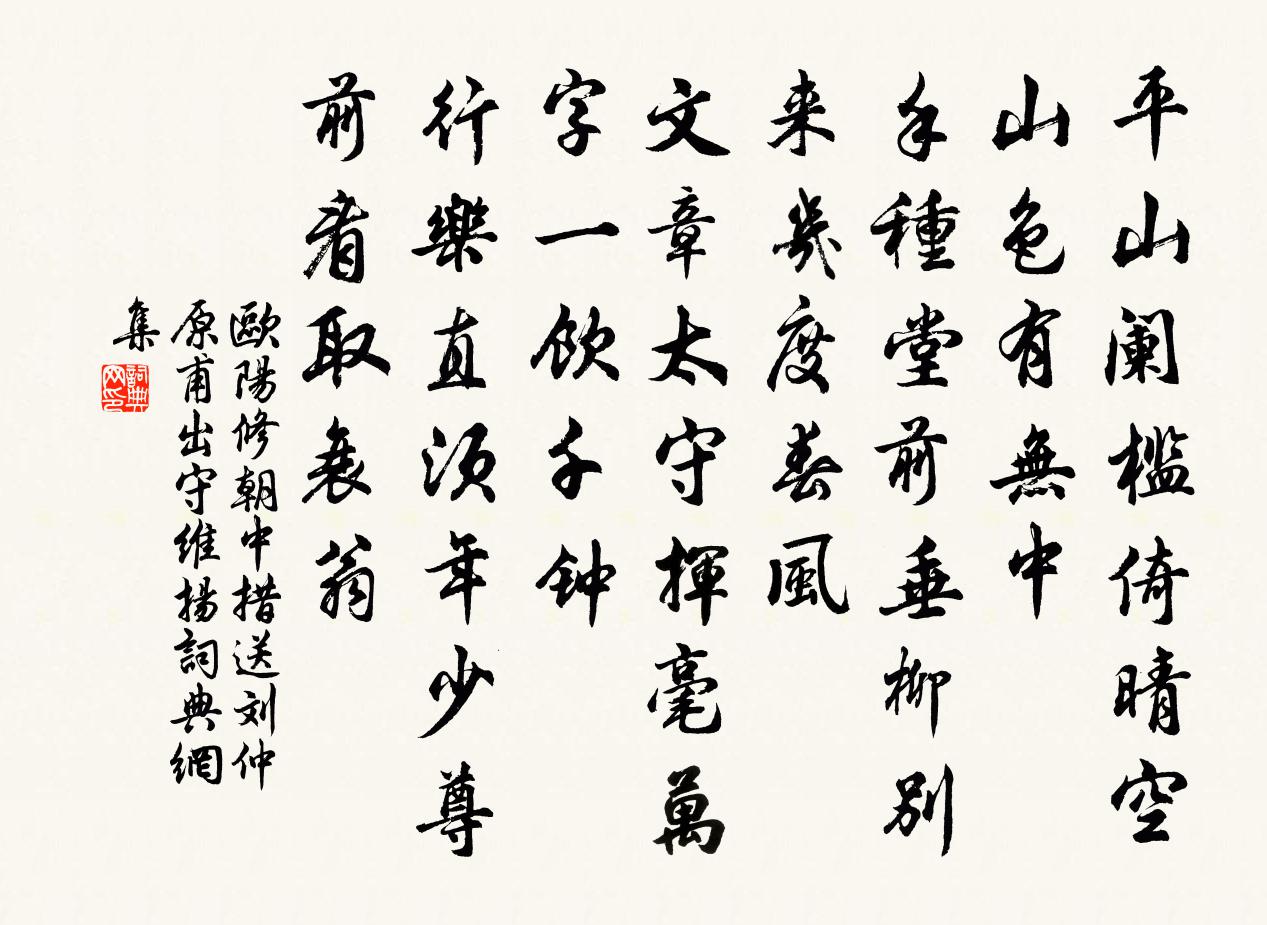 平山阑槛倚晴空
山色有無中
手種堂前垂柳别
来幾度春風
文章太守揮毫萬
字一飲千钟
行樂直須年少尊
前看取衰翁
歐陽修朝中措送刘仲
原甫出守維揚詞典網
集
詞典
网印